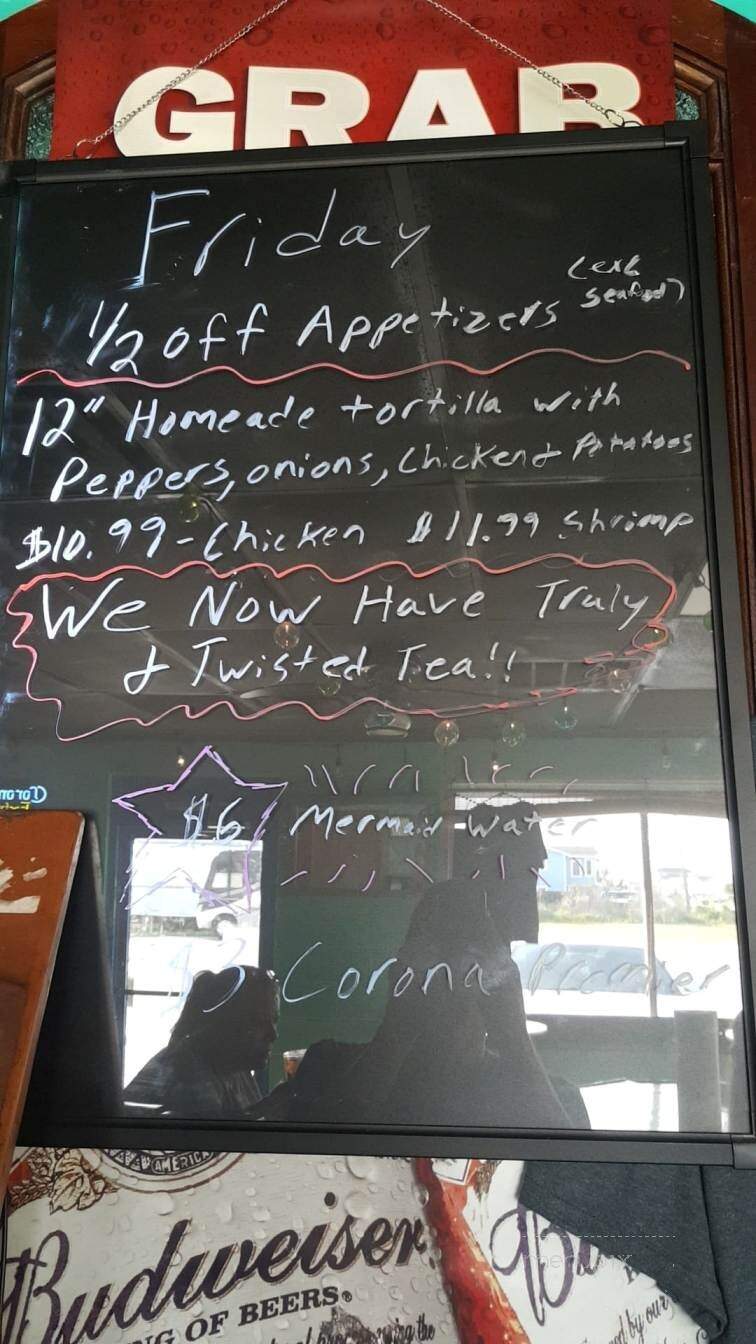 GRAB
Friday
1/2 off Appetizers (exc
seafood)
12" Homeade tortilla with
Peppers, onions, Chicken & Potatoes
$10.99 - Chicken $11.99 Shrimp
We Now Have Truly
& Twisted Tea!!
$6 Mermaid Water
$3 Corona Premier
Coron
AMERIC
Budweiser
NG OF BEERS®
ing the
d by our